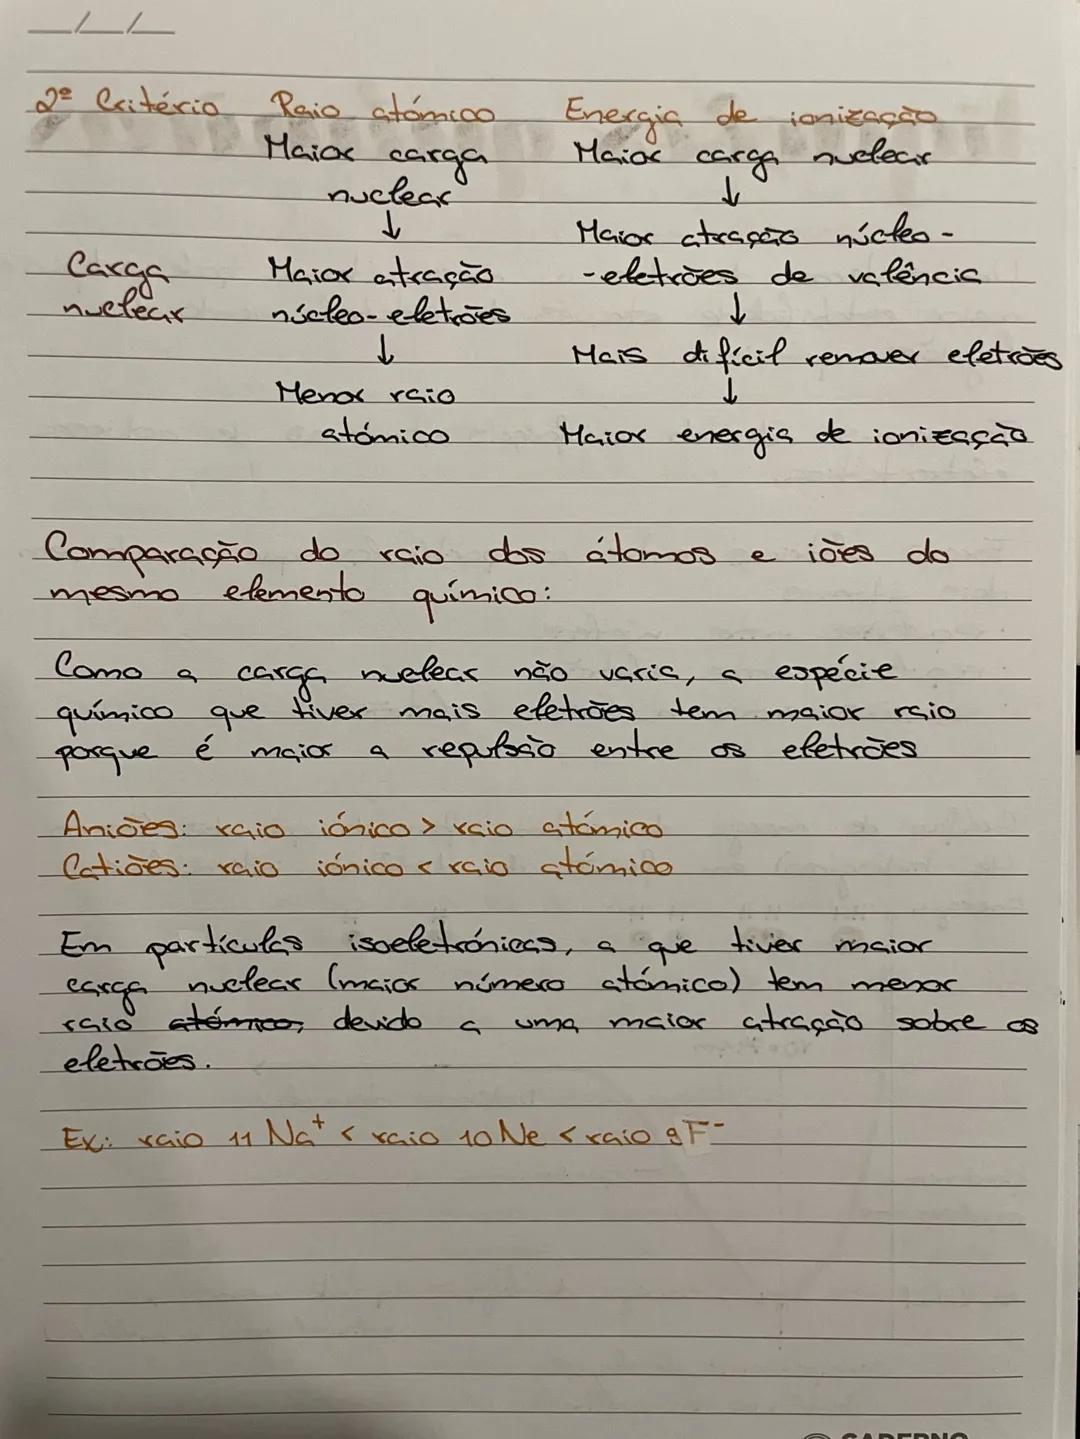 2º Critério Raio atómico Energia de ionização
Maior carga Maior carga nuclear
nuclear ↓
↓ Maior atração núcleo-
Carga Maior atração -eletrões de valência
nuclear núcleo-eletrões ↓
↓ Mais difícil remover eletrões
Menor raio ↓
atómico Maior energia de ionização
Comparação do raio dos átomos e iões do
mesmo elemento químico:
Como a carga nuclear não varia, a espécie
químico que tiver mais eletrões tem maior raio
porque é maior a repulsão entre os eletrões
Aniões: raio iónico > raio atómico
Catiões: raio iónico < raio atómico
Em partículas isoeletrónicas, a que tiver maior
carga nuclear (maior número atómico) tem menor
raio atómico, devido a uma maior atração sobre os
eletrões.
Ex: raio 11 Na⁺ < raio 10 Ne < raio 9 F⁻
CADERNO